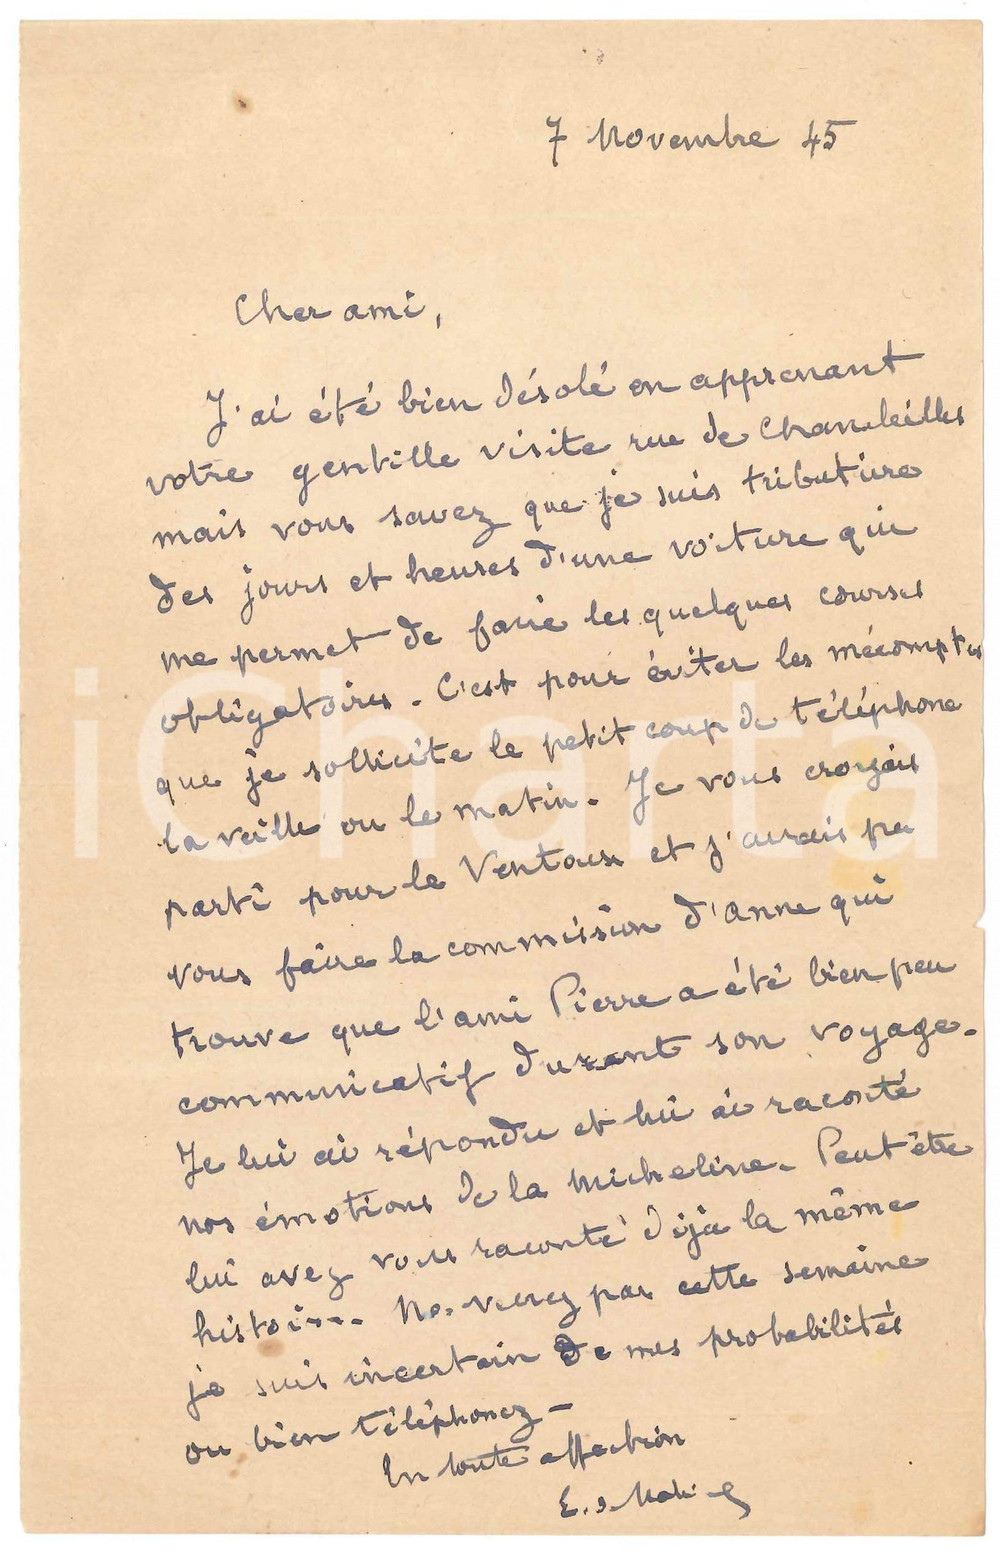 7 Novembre 45
Cher ami,
J'ai été bien désolé en apprenant
votre gentille visite rue de Chanaleilles
mais vous savez que je suis tributaire
des jours et heures d'une voiture qui
me permet de faire les quelques courses
obligatoires. C'est pour éviter les mécomptes
que je sollicite le petit coup de téléphone
la veille ou le matin. Je vous croyais
parti pour le Ventoux et j'aurais pu
vous faire la commission d'Anne qui
trouve que l'ami Pierre a été bien peu
communicatif durant son voyage.
Je lui ai répondu et lui ai raconté
nos émotions de la micheline. Peut être
lui avez vous raconté déjà la même
histoire. Ne venez pas cette semaine
je suis incertain de mes probabilités
ou bien téléphonez —
En toute affection
iCharta